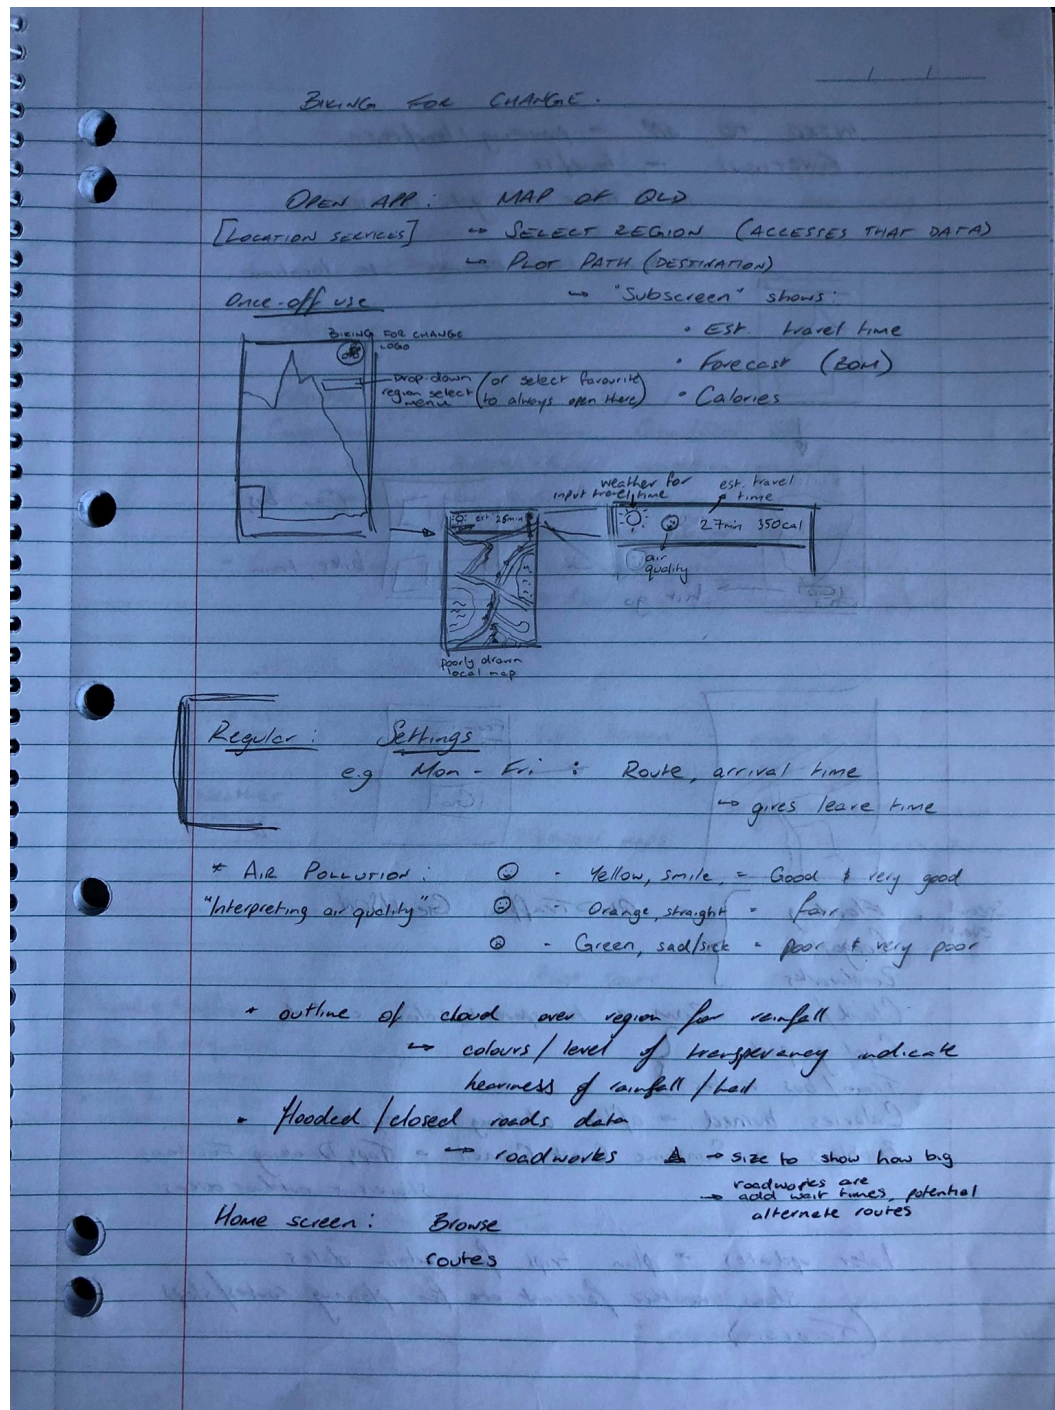 BIKING FOR CHANGE.
OPEN APP: MAP OF QLD
[LOCATION SERVICES] ↳ SELECT REGION (ACCESSES THAT DATA)
↳ PLOT PATH (DESTINATION)
Once-off use
↳ "Subscreen" shows:
• Est. travel time
• Forecast (BOM)
• Calories
BIKING FOR CHANGE
LOGO
Drop-down (or select favourite
region select to always open there)
menu
weather for
input travel time
est. travel
time
est 25min
27min 350cal
air
quality
poorly drawn
local map
Regular: Settings
e.g Mon - Fri : Route, arrival time
↳ gives leave time
* AIR POLLUTION: - Yellow, smile, = Good & very good
"Interpreting air quality" - Orange, straight = fair
- Green, sad/sick = poor & very poor
* outline of cloud over region for rainfall
↳ colours/level of transperancy indicate
heaviness of rainfall/hail
• flooded/closed roads data
↳ roadworks → size to show how big
roadworks are
→ add wait times, potential
alternate routes
Home screen: Browse
routes